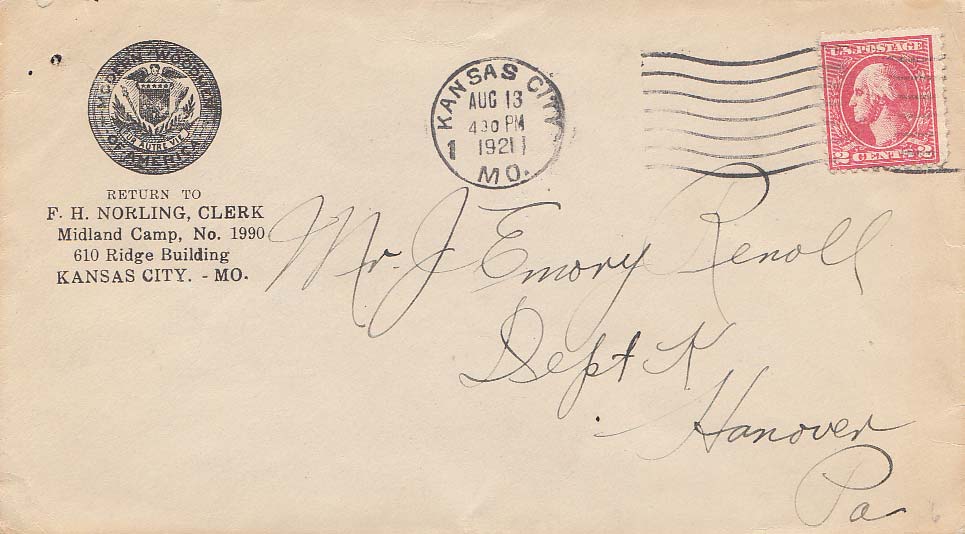 MODERN WOODMEN
OF AMERICA
AUTRE VIE
RETURN TO
F. H. NORLING, CLERK
Midland Camp, No. 1990
610 Ridge Building
KANSAS CITY. - MO.
KANSAS CITY
AUG 13
430 PM
1921
1
MO.
U.S. POSTAGE
2 CENTS 2
Mr. J Emory Renoll
Dept K
Hanover
Pa